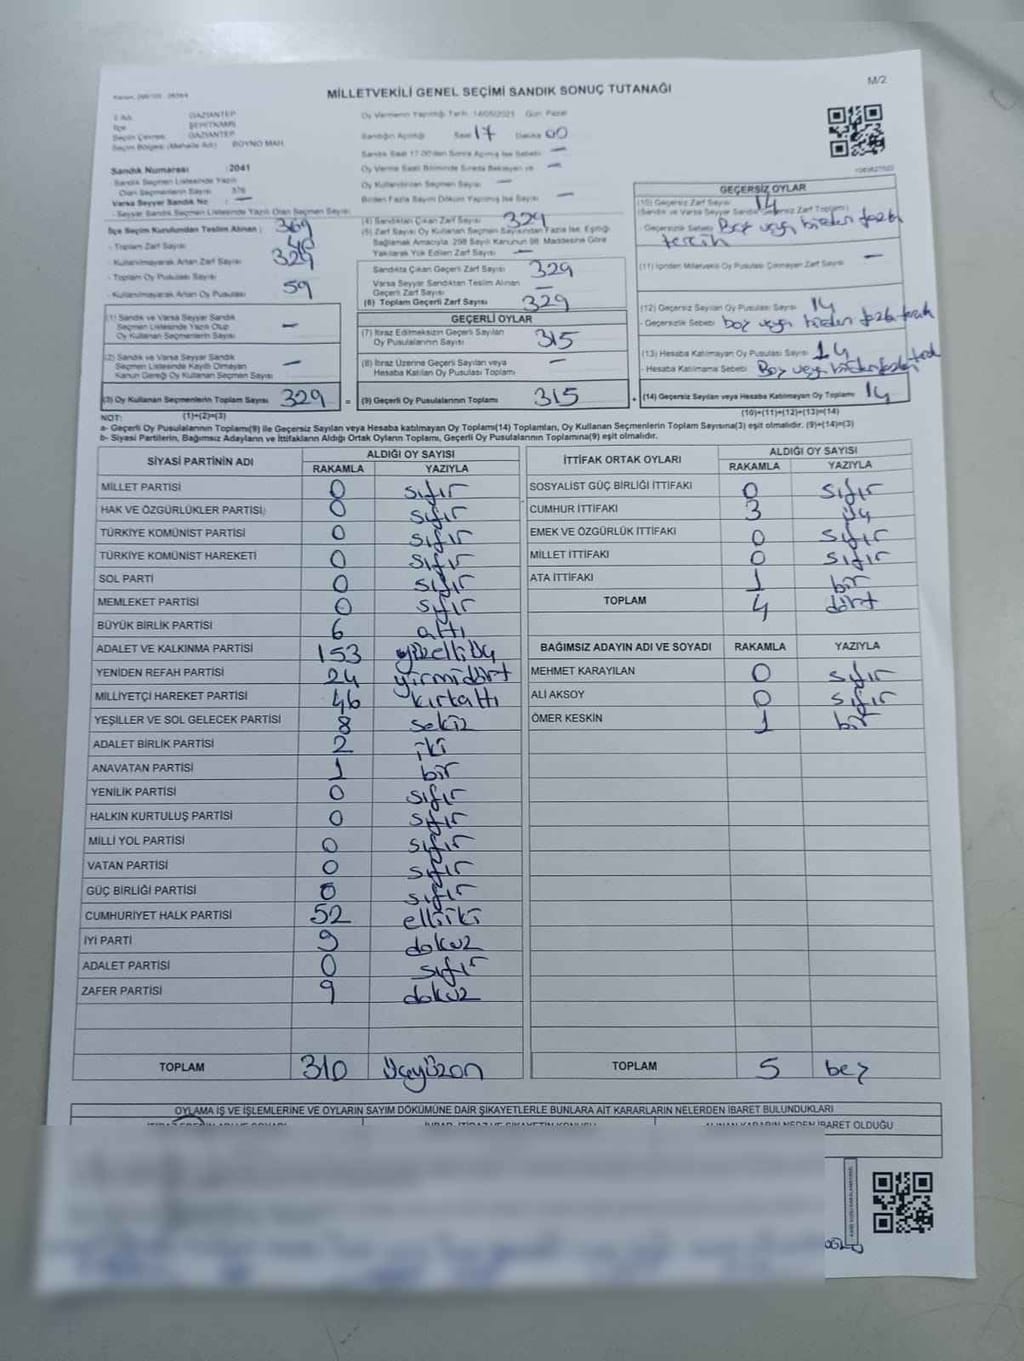 M/2
MİLLETVEKİLİ GENEL SEÇİMİ SANDIK SONUÇ TUTANAĞI
İl Adı GAZİANTEP
İlçe ŞEHİTKAMİL
Seçim Çevresi GAZİANTEP
Seçim Bölgesi (Mahalle Adı) BOYNO MAH.
Sandık Numarası :2041
Sandık Seçmen Listesinde Yazılı
Olan Seçmenlerin Sayısı 376
Varsa Seyyar Sandık No : —
Seyyar Sandık Seçmen Listesinde Yazılı Olan Seçmen Sayısı
İlçe Seçim Kurulundan Teslim Alınan : 369
- Toplam Zarf Sayısı
- Kullanılmayarak Artan Zarf Sayısı 329
- Toplam Oy Pusulası Sayısı
- Kullanılmayarak Artan Oy Pusulası 59
(1) Sandık ve Varsa Seyyar Sandık
Seçmen Listesinde Yazılı Olup
Oy Kullanan Seçmenlerin Sayısı —
(2) Sandık ve Varsa Seyyar Sandık
Seçmen Listesinde Kayıtlı Olmayan
Kanun Gereği Oy Kullanan Seçmen Sayısı —
(3) Oy Kullanan Seçmenlerin Toplam Sayısı 329 =
Oy Vermenin Yapıldığı Tarih: 14/05/2023 Gün: Pazar
Sandığın Açıldığı Saat 17 Dakika 00
Sandık Saat 17.00'den Sonra Açılmış İse Sebebi —
Oy Verme Saati Bitiminde Sırada Bekleyen ve —
Oy Kullandırılan Seçmen Sayısı —
Birden Fazla Sayım Döküm Yapılmış İse Sayısı —
(4) Sandıktan Çıkan Zarf Sayısı 329
(5) Zarf Sayısı Oy Kullanan Seçmen Sayısından Fazla İse, Eşitliği
Sağlamak Amacıyla, 298 Sayılı Kanunun 98. Maddesine Göre
Yakılarak Yok Edilen Zarf Sayısı —
Sandıkta Çıkan Geçerli Zarf Sayısı 329
Varsa Seyyar Sandıktan Teslim Alınan
Geçerli Zarf Sayısı —
(6) Toplam Geçerli Zarf Sayısı 329
GEÇERLİ OYLAR
(7) İtiraz Edilmeksizin Geçerli Sayılan
Oy Pusulalarının Sayısı 315
(8) İtiraz Üzerine Geçerli Sayılan veya
Hesaba Katılan Oy Pusulası Toplamı —
(9) Geçerli Oy Pusulalarının Toplamı 315 +
GEÇERSİZ OYLAR
(10) Geçersiz Zarf Sayısı 14
(Sandık ve Varsa Seyyar Sandık Geçersiz Zarf Toplamı)
- Geçersizlik Sebebi Boş veya birden fazla
tercih
(11) İçinden Milletvekili Oy Pusulası Çıkmayan Zarf Sayısı —
(12) Geçersiz Sayılan Oy Pusulası Sayısı 14
- Geçersizlik Sebebi boş veya birden fazla tercih
(13) Hesaba Katılmayan Oy Pusulası Sayısı 14
- Hesaba Katılmama Sebebi Boş veya birden fazla tercih
(14) Geçersiz Sayılan veya Hesaba Katılmayan Oy Toplamı 14
NOT: (1)+(2)=(3) (10)+(11)+(12)+(13)=(14)
a- Geçerli Oy Pusulalarının Toplamı(9) ile Geçersiz Sayılan veya Hesaba katılmayan Oy Toplamı(14) Toplamları, Oy Kullanan Seçmenlerin Toplam Sayısına(3) eşit olmalıdır. (9)+(14)=(3)
b- Siyasi Partilerin, Bağımsız Adayların ve İttifakların Aldığı Ortak Oyların Toplamı, Geçerli Oy Pusulalarının Toplamına(9) eşit olmalıdır.
SİYASİ PARTİNİN ADI ALDIĞI OY SAYISI
RAKAMLA YAZIYLA
MİLLET PARTİSİ 0 sıfır
HAK VE ÖZGÜRLÜKLER PARTİSİ 0 sıfır
TÜRKİYE KOMÜNİST PARTİSİ 0 sıfır
TÜRKİYE KOMÜNİST HAREKETİ 0 sıfır
SOL PARTİ 0 sıfır
MEMLEKET PARTİSİ 0 sıfır
BÜYÜK BİRLİK PARTİSİ 6 altı
ADALET VE KALKINMA PARTİSİ 153 yüzelliüç
YENİDEN REFAH PARTİSİ 24 yirmidört
MİLLİYETÇİ HAREKET PARTİSİ 46 kırkaltı
YEŞİLLER VE SOL GELECEK PARTİSİ 8 sekiz
ADALET BİRLİK PARTİSİ 2 iki
ANAVATAN PARTİSİ 1 bir
YENİLİK PARTİSİ 0 sıfır
HALKIN KURTULUŞ PARTİSİ 0 sıfır
MİLLİ YOL PARTİSİ 0 sıfır
VATAN PARTİSİ 0 sıfır
GÜÇ BİRLİĞİ PARTİSİ 0 sıfır
CUMHURİYET HALK PARTİSİ 52 elliiki
İYİ PARTİ 9 dokuz
ADALET PARTİSİ 0 sıfır
ZAFER PARTİSİ 9 dokuz
TOPLAM 310 Üçyüzon
İTTİFAK ORTAK OYLARI ALDIĞI OY SAYISI
RAKAMLA YAZIYLA
SOSYALİST GÜÇ BİRLİĞİ İTTİFAKI 0 sıfır
CUMHUR İTTİFAKI 3 üç
EMEK VE ÖZGÜRLÜK İTTİFAKI 0 sıfır
MİLLET İTTİFAKI 0 sıfır
ATA İTTİFAKI 1 bir
TOPLAM 4 dört
BAĞIMSIZ ADAYIN ADI VE SOYADI RAKAMLA YAZIYLA
MEHMET KARAYILAN 0 sıfır
ALİ AKSOY 0 sıfır
ÖMER KESKİN 1 bir
TOPLAM 5 beş
OYLAMA İŞ VE İŞLEMLERİNE VE OYLARIN SAYIM DÖKÜMÜNE DAİR ŞİKAYETLERLE BUNLARA AİT KARARLARIN NELERDEN İBARET BULUNDUKLARI
ALINAN KARARIN NEDEN İBARET OLDUĞU